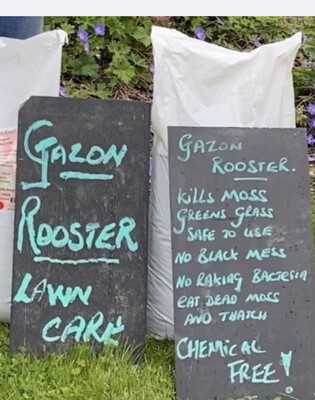 GAZON
ROOSTER
LAWN
CARE
GAZON
ROOSTER.
KILLS MOSS
GREENS GRASS
SAFE TO USE
NO BLACK MESS
NO RAKING BACTERIA
EAT DEAD MOSS
AND THATCH
CHEMICAL
FREE!